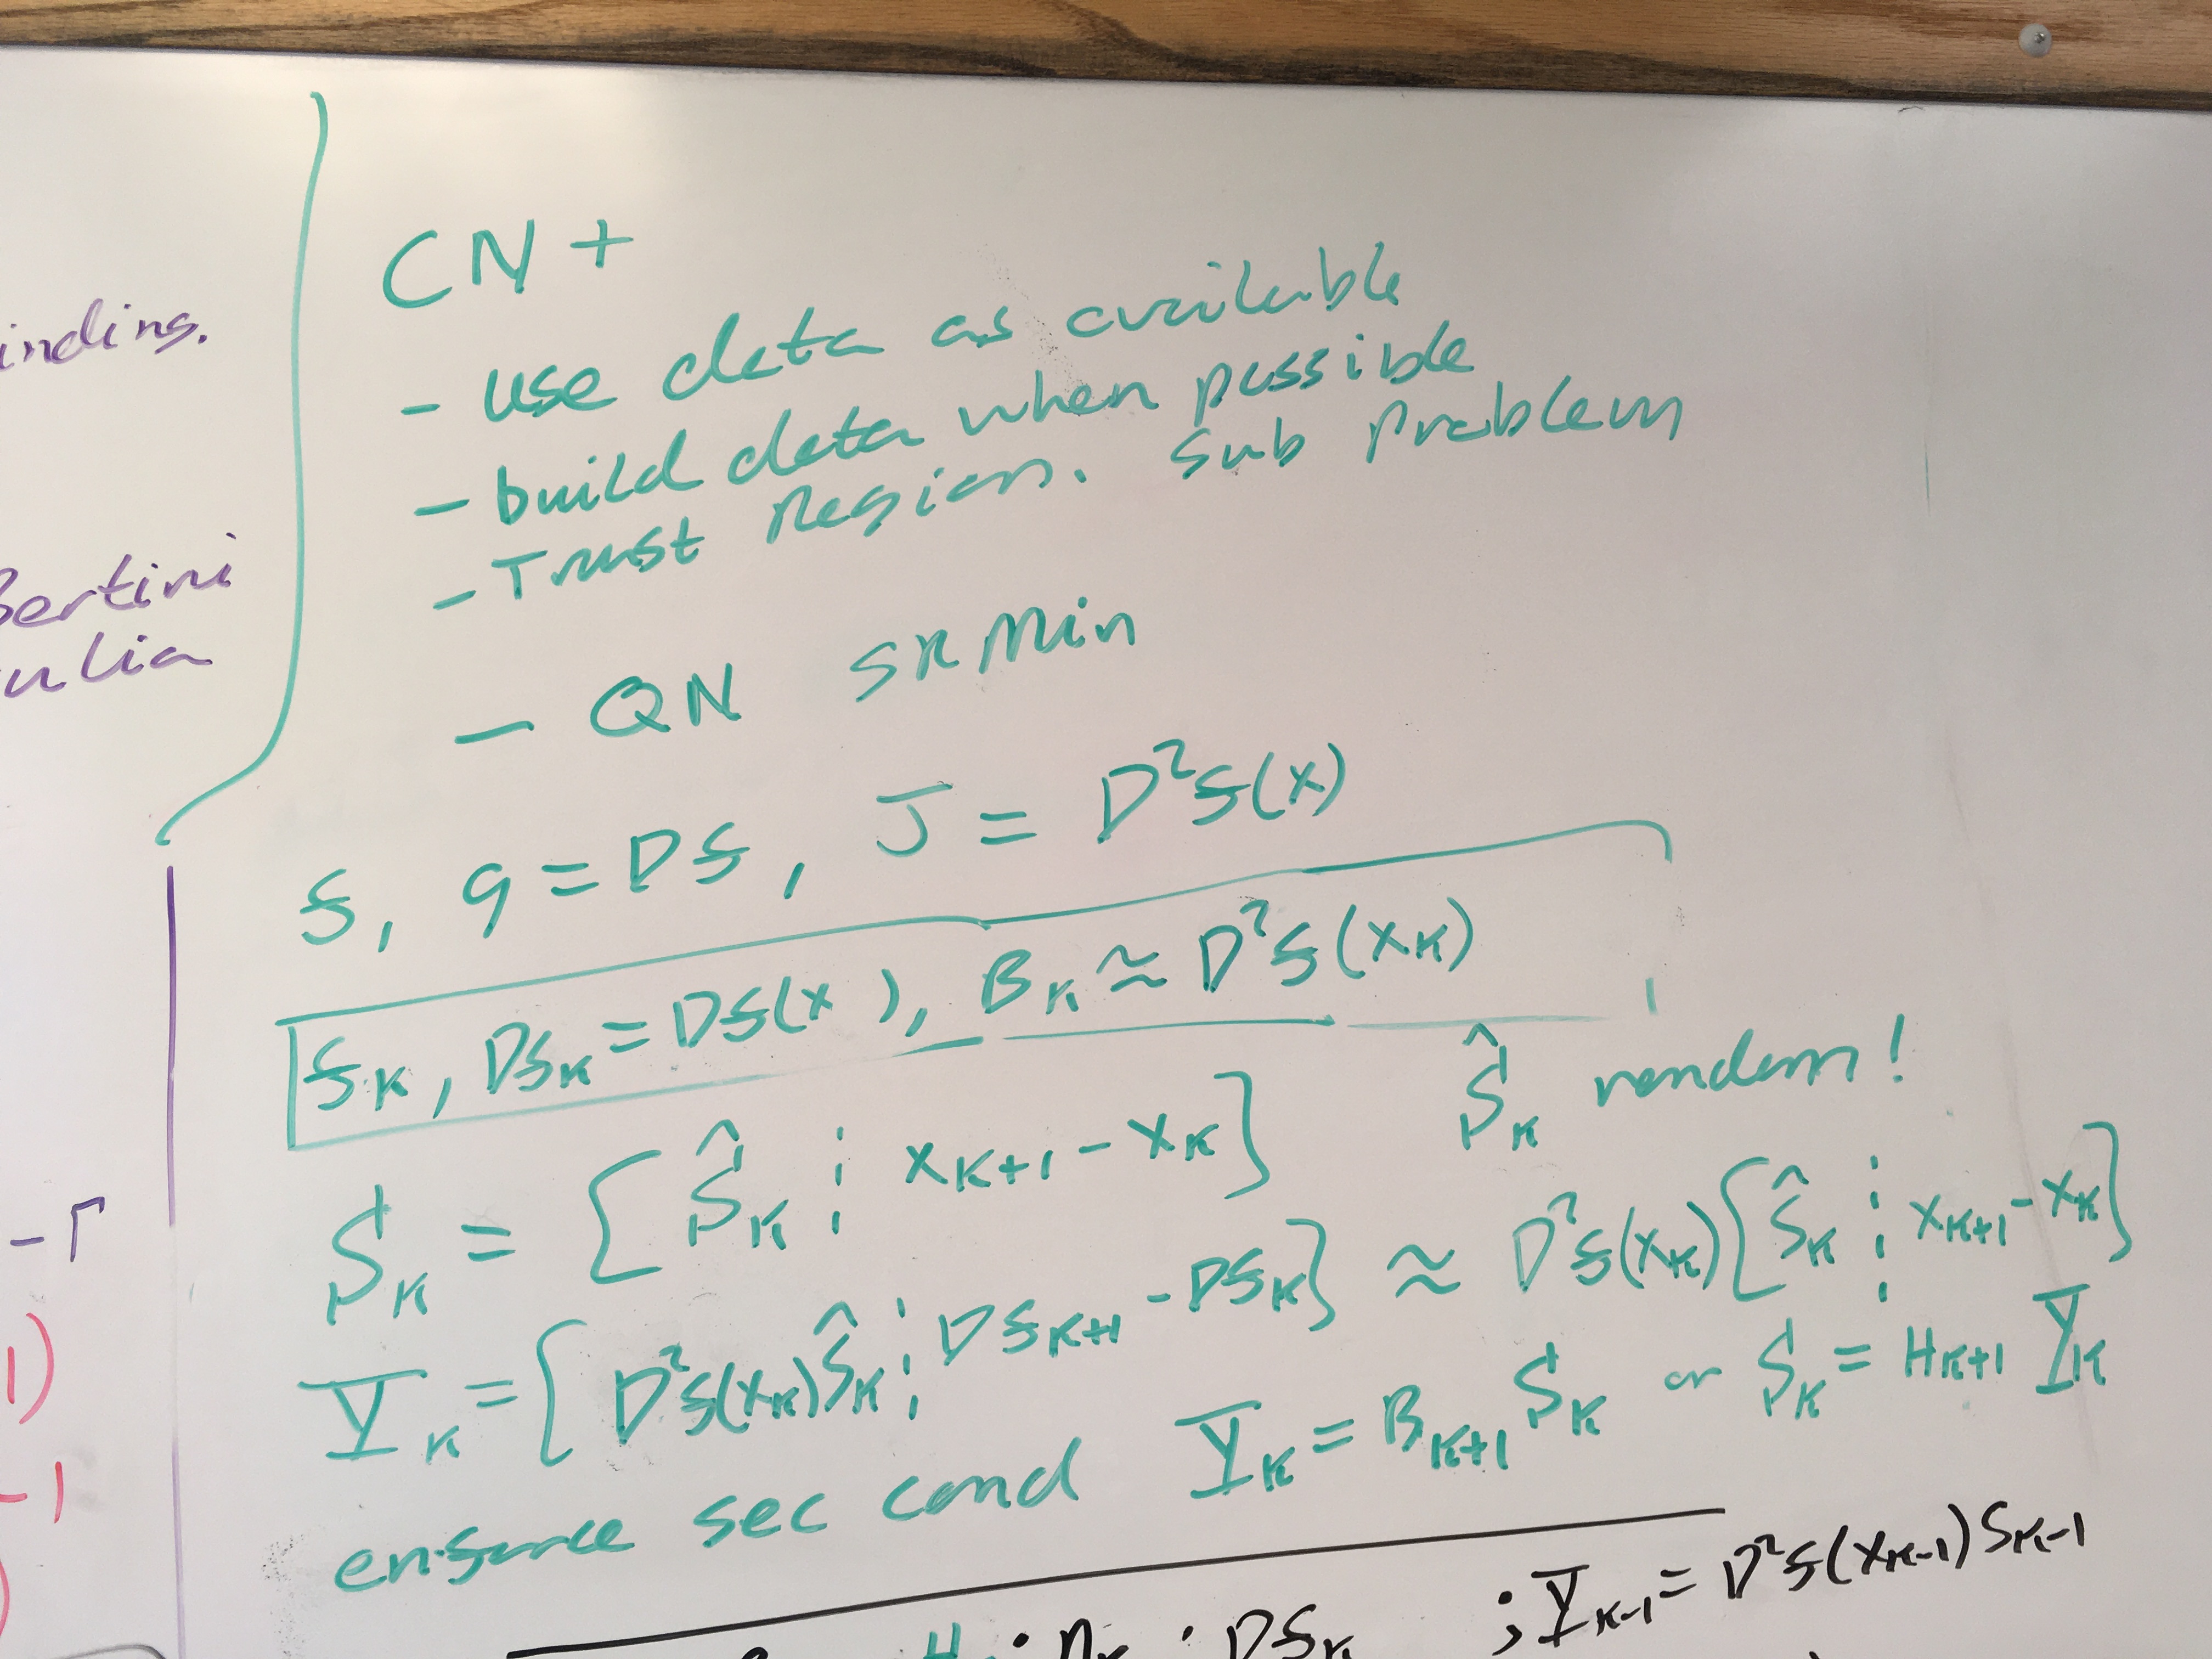 inding.
Bertini
ulia
-Γ
1)
-1
CN +
- use data as available
- build data when possible
- Trust Region. Sub Problem
- QN SR Min
f, g = Df, J = D²f(x)
f_K, Df_K = Df(x ), B_K ≈ D²f(x_K)
Ŝ_K random!
S_K = [Ŝ_K ⋮ x_K+1 - x_K]
Y_K = [D²f(x_K)Ŝ_K ⋮ Df_K+1 - Df_K] ≈ D²f(x_K)[Ŝ_K ⋮ x_K+1 - x_K]
enforce sec cond Y_K = B_K+1 S_K or S_K = H_K+1 Y_K
; Y_K-1 = D²f(x_K-1) S_K-1
Df_K